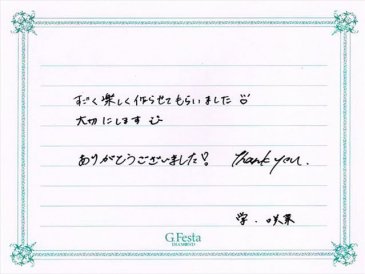 すごく楽しく作らせてもらいました
大切にします
ありがとうございました! Thank you.
学・咲菜
G.Festa
DIAMOND